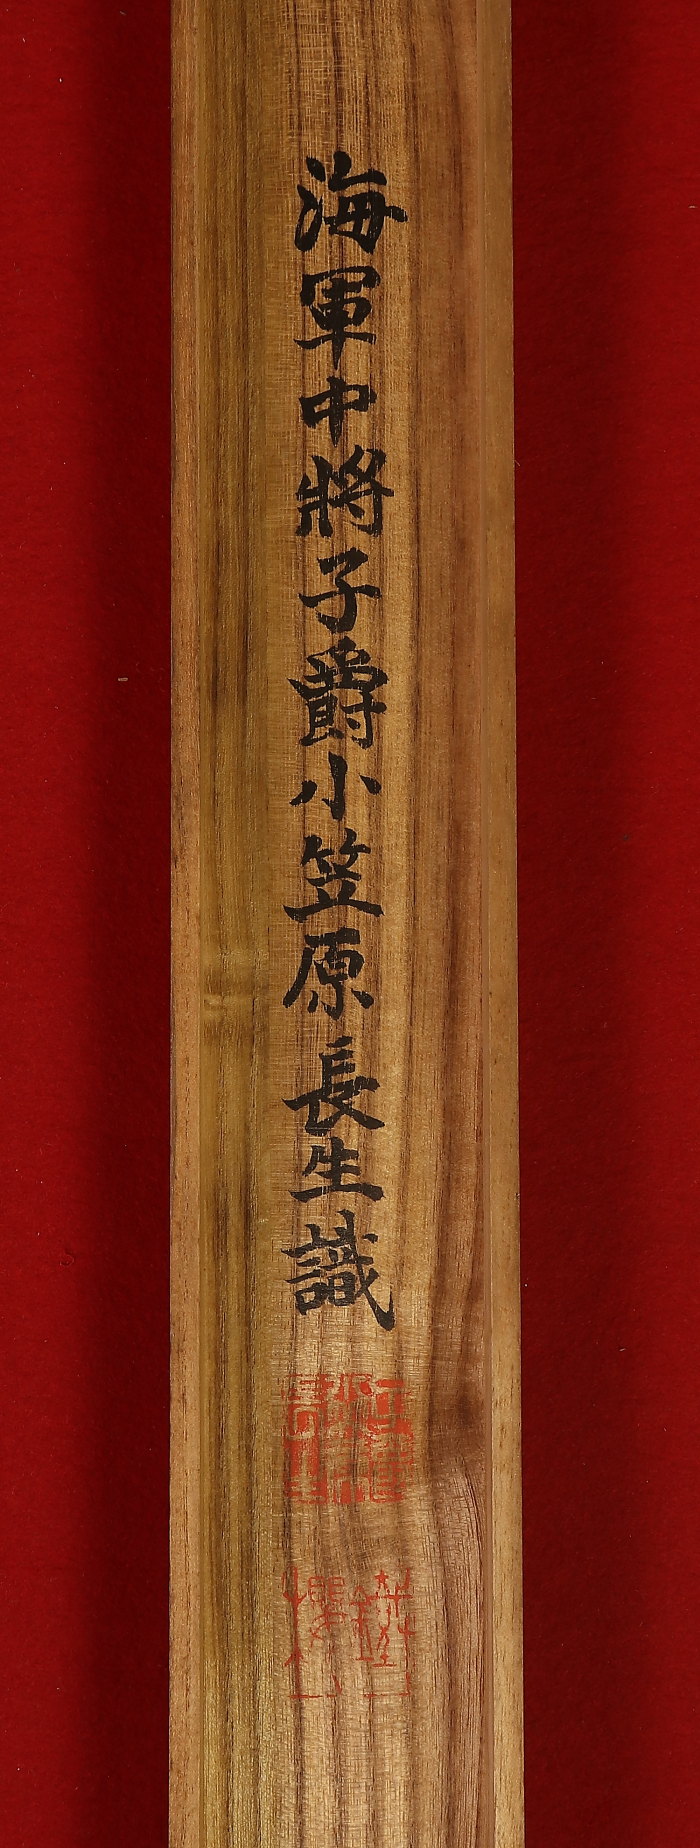 海軍中將子爵小笠原長生識